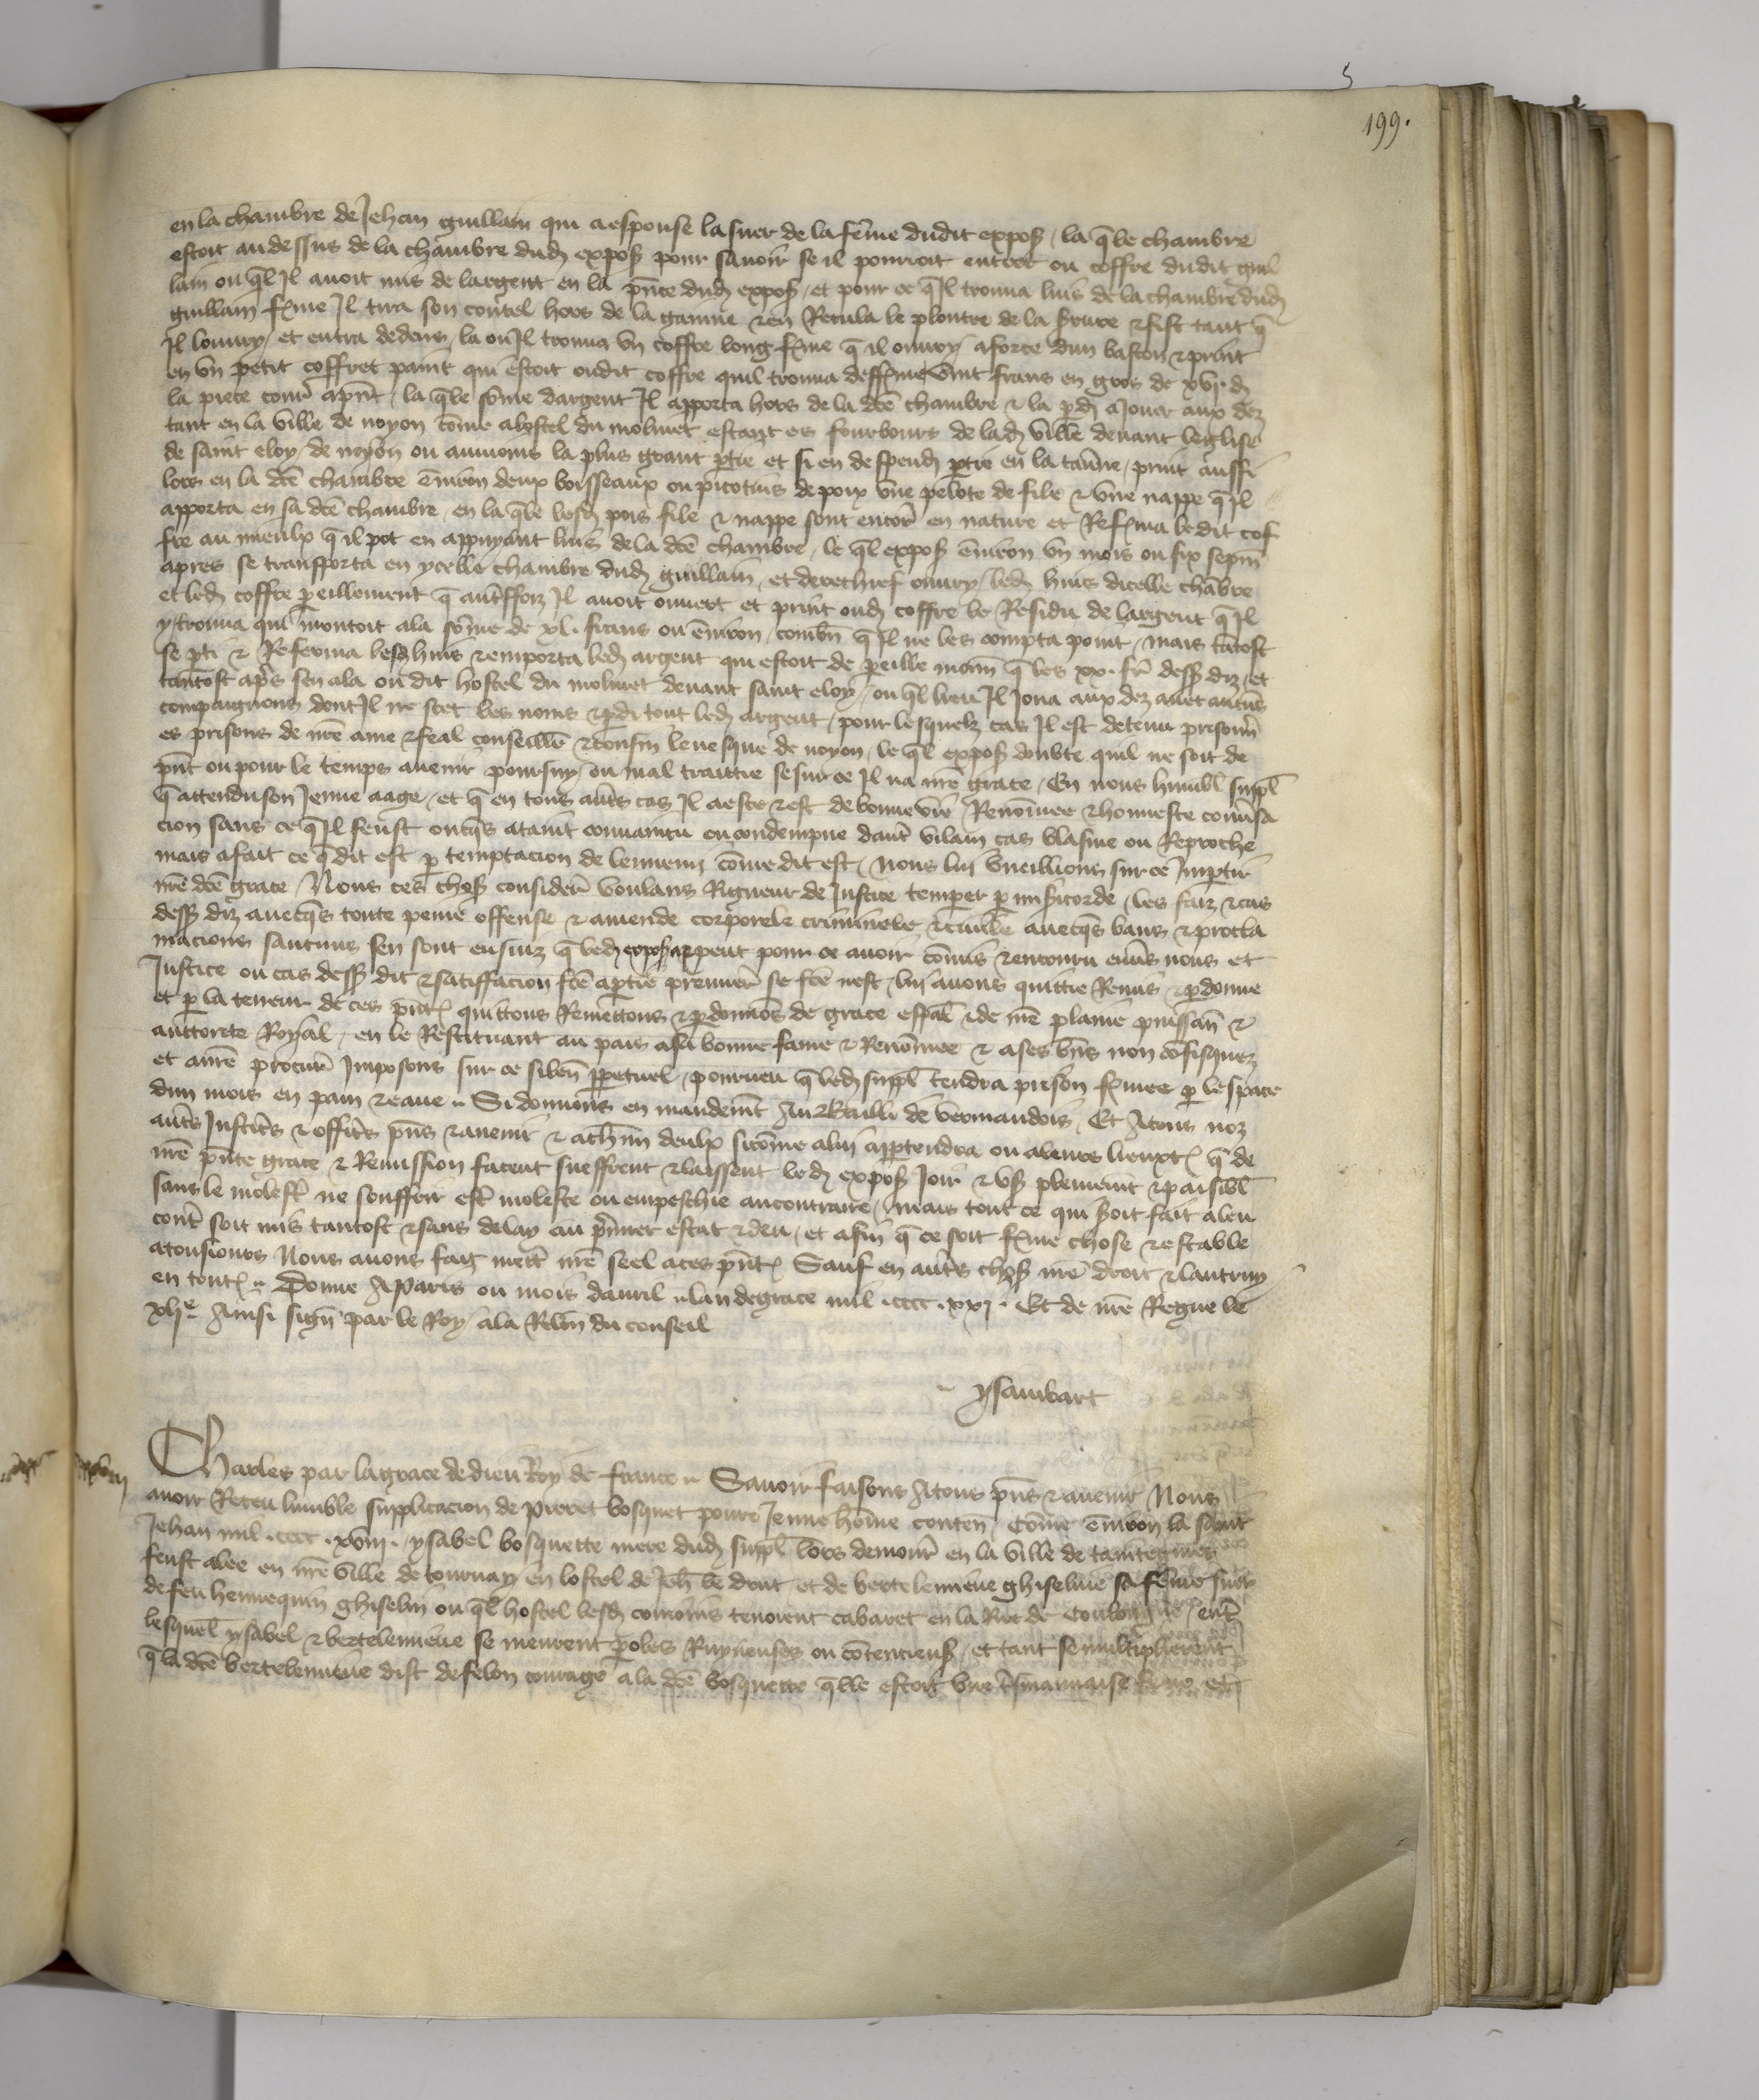 199.
en la chambre de Jehan guillain qui a espouse la suer de la fēme dudit expos̄, la q̄le chambre
estoit au dessus de la chambre dud expos̄ pour savoir se il pourroit entrer ou coffre dudit guil
lain ou q̄l Il avoit mis de largent en la pn̄ce dud expos̄, et pour ce q̄ Il trouva luis de la chambre dud
guillain f̄me Il tira son coutel hors de la gainne & en Recula le ploutre de la serure & fist tant q̄
Il louvry, et entra dedens, la ou Il trouva un coffre long f̄me q̄ il ouvry a force dun baston & print
en un petit coffret paint qui estoit oudit coffre quil trouva deff̄me vint frans en gros de xvi. d
la piece cour̄ a pn̄t, la q̄le sōme dargent Il apporta hors de la dcē chambre & la pd a jouer aux dez
tant en la ville de noyon cōme a lostel du molinet estant es fourbours de lad ville devant leglise
de saint eloy de noyon ou aumoins la plus grant ptie et si en despend ptie en la tav̄ne, print aussi
lors en la dcē chambre ēviron deux boisseaux ou picotins de poix une pelote de file & une nappe q̄ Il
apporta en sa dcē chambre, en la q̄le lesd pois file & nappe sont encor̄ en nature et Ref̄ma ledit cof
fre au mieulx q̄ il pot en appuyant luis de la dcē chambre, le q̄l expos̄ ēviron un mois ou six sepm̄
apres se transporta en ycelle chambre dud guillain, et derechief ouvry led huis dicelle chābre
et led coffre peillement q̄ aut̄effoiz Il avoit ouvert et print oud coffre le Residu de largent q̄ Il
y trouva qui montoit a la sōme de xl. frans ou ēviron, combn̄ q̄ Il ne les compta point, mais tātost
se pti & Referma lesd huis & emporta led argent qui estoit de peille monn̄ q̄ les xx. fr̄ dess̄ diz, et
tantost ap̄s sen ala ou dit hostel du molinet devant saint eloy, ou q̄l lieu Il joua aux dez avec aucūs
compaignons dont Il ne scet les noms & pdi tout led argent, pour lesquelz cas Il est detenu prisonn̄
es prisons de nr̄e ame & feal conseillr̄ & cousin levesque de noyon, le q̄l expos̄ doubte quil ne soit de
pn̄t ou pour le temps avenir poursuy, ou mal traittie se sur ce Il na nr̄e grace, En nous humbl̄ supl̄
q̄ attendu son jeune aage, et q̄ en tous aut̄s cas Il a este & est de bonne vie Renōmee & honneste conv̄sa
cion sans ce q̄ Il feust oncq̄s ataint convaincu ou condempne daut̄ vilain cas blasme ou Reproche
mais a fait ce q̄ dit est p temptacion de lennemi cōme dit est, Nous lui vueillions sur ce Impartir
nr̄e dcē grace, Nous ces chos̄ consider̄ voulans Rigueur de Justice temper p mis̄icorde, les faiz & cas
dess̄ diz avecq̄s toute peine offense & amende corporele criminele & civile avecq̄s bans & procla
macions saucuns sen sont ensuiz q̄ led expos̄ peut pour ce avoir cōmis & encouru env̄s nous et
Justice ou cas dess̄ dit & satisfacion fcē a ptie premier̄ se fcē nest, lui avons quittie Remis & pdonne
et p la teneur de ces pn̄tes quittons Remettons & pdonnōs de grace espāl & de nr̄e plaine puissan̄ &
auctorite Royal, en le Restituant au pais a sa bonne fame & Renōmee & a ses bn̄s non cōfisquez
et a nr̄e procur̄ Imposons sur ce silen̄ ppetuel, pourveu q̄ led supl̄ tendra prison f̄mee p lespace
dun mois en pain & eaue. Si donnons en mandemt̄ Au Bailli de vermandois, Et A tous noz
aut̄s Justic̄s & offic̄s pn̄s & avenir & a chm̄ deulx sicōme a lui appartendra ou a leurs lieuxt̄ q̄ de
nr̄e pn̄te grace & Remission facent sueffrent & laissent led expos̄ joir & us̄ plenemt̄ & paisibl̄
sans le molest̄ ne souffrir est̄ moleste ou empeschie au contraire, mais tout ce qui seroit fait a leu
cont̄ soit mis tantost & sans delay au p̄mier estat & deu, et afin q̄ ce soit f̄me chose & estable
a tousiours Nous avons fait mett̄ nr̄e seel a ces pn̄tes Sauf en aut̄s chos̄ nr̄e droit & lautruy
en toutes. Donne A Paris ou mois davril lan de grace mil .cccc. xxi. Et de nr̄e Regne le
xlie. Ainsi sign̄ par le Roy a la Relōn du conseil
ysambart
Charles par la grace de dieu Roy de france. Savoir faisons A tous pn̄s & avenir Nous
avoir Receu lumble supplicacion de pieret bosquet povre jeune hōme conten̄, Cōme ēviron la saint
Jehan mil .cccc. xviii., ysabel bosquette mere dud supl̄ lors demour̄ en la ville de taintegnies
feust alee en nr̄e ville de tournay en lostel de Jeh̄ le dout et de bertelemieue ghiseline sa fēme suer
de feu hennequin ghiselin ou q̄l hostel lesd conioins tenoient cabaret en la Rue de Coulongne, ent̄
lesquel̄ ysabel & bertelemieue se meurent poles Ruyneuses ou cōtencieus̄, et tant se multiplierent
q̄ la dcē bertelemieue dist de felon courage a la dcē bosquette q̄lle estoit une t̄smauvaise